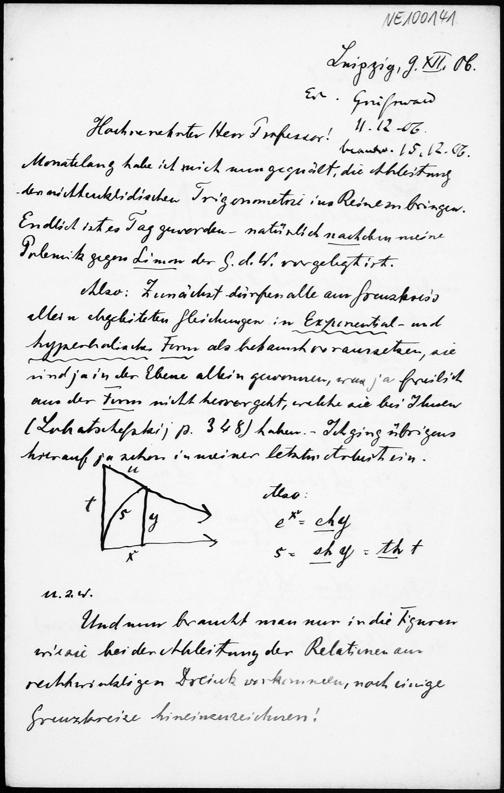 NE100141
Leipzig, 9. XII. 06.
Er. Greifswald
11.12.06.
beantw. 15.12.06.
Hochverehrter Herr Professor!
Monatelang habe ich mich nun gequält, die Ableitung
der nichteuklidischen Trigonometrie ins Reine zu bringen.
Endlich ist es Tag geworden - natürlich nachdem meine
Polemik gegen Simon der G. d. W. vorgelegt ist.
Also: Zunächst dürfen alle am Grenzkreis
allein abgeleiteten Gleichungen in Exponential- und
hyperbolischer Form als bekannt voraussetzen, sie
sind ja in der Ebene allein gewonnen, was ja freilich
aus der Form nicht hervorgeht, welche sie bei Ihnen
(Lobatschefskij p. 348) haben. - Ich ging übrigens
hierauf ja schon in meiner letzten Arbeit ein.
u
t s y
x
Also:
e^x = ch y
s = sh y = th t
u. s. w.
Und nun braucht man nur in die Figuren
wie sie bei der Ableitung der Relationen am
rechtwinkligen Dreieck vorkommen, noch einige
Grenzkreise hineinzuzeichnen!